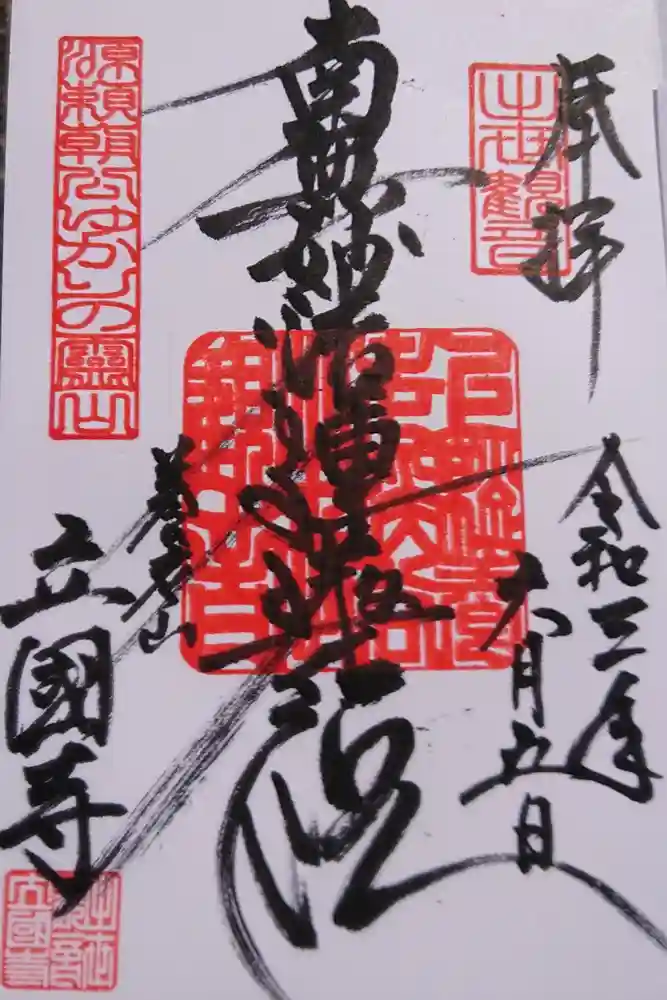 奉拝
出世觀音
令和三年
六月五日
南無妙法蓮華経
源頼朝公ゆかりの靈山
養老山
立國寺